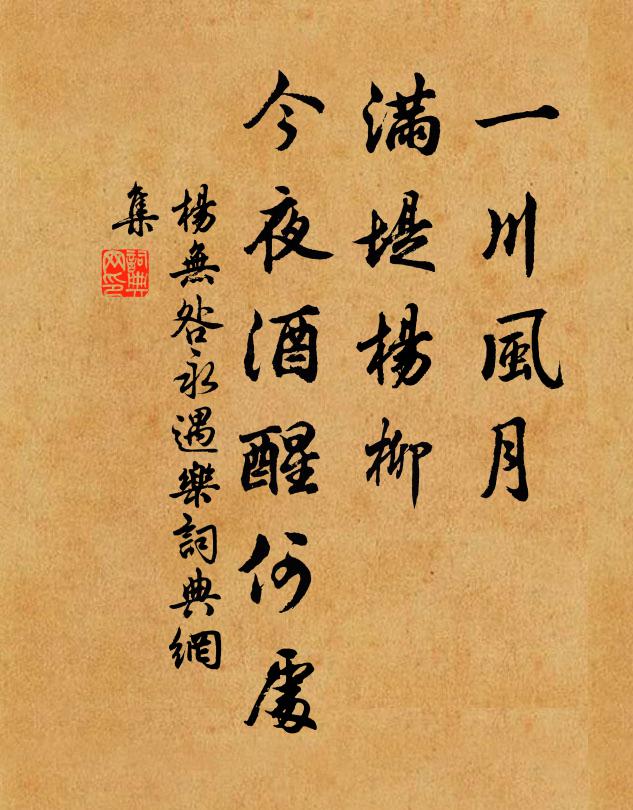 一川風月
滿堤楊柳
今夜酒醒何處
楊無咎永遇樂詞典網
集
詞典网印